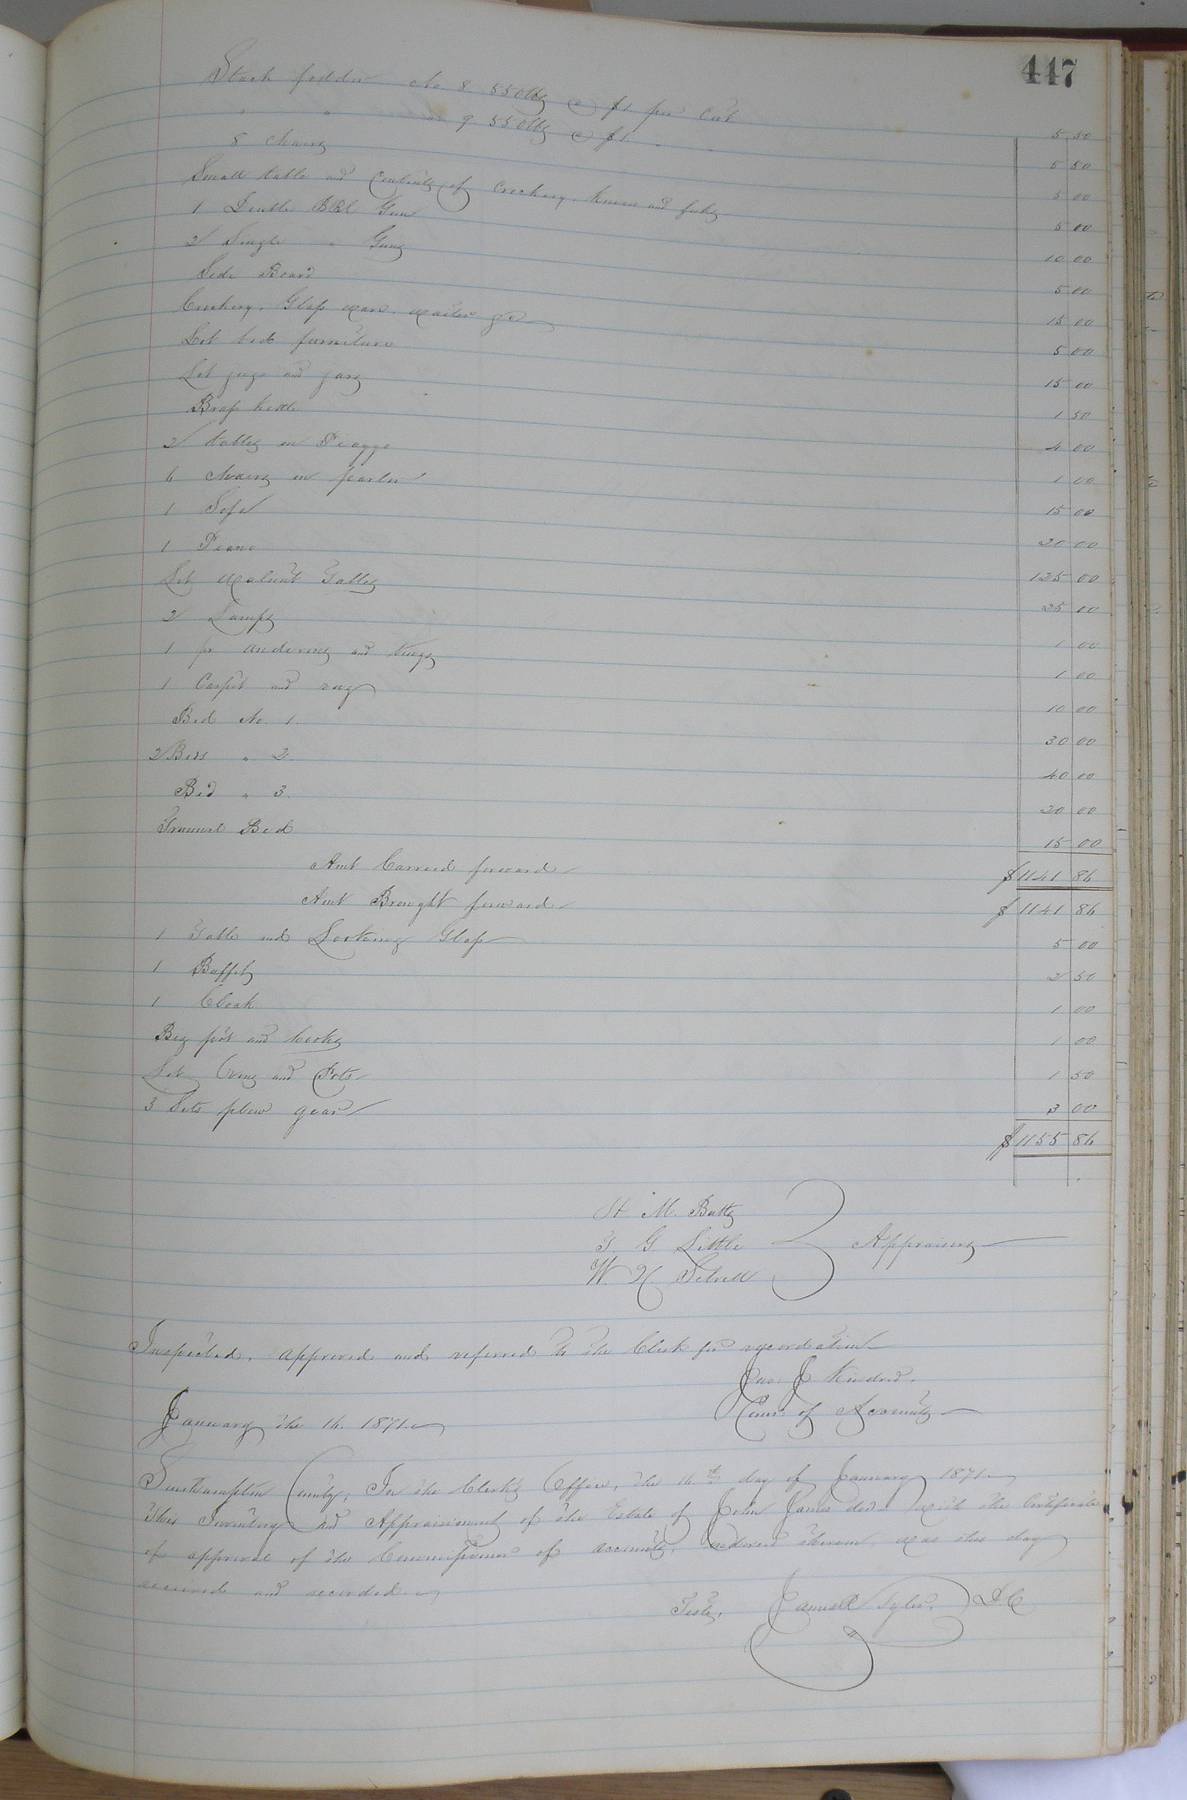 447
Stack fodder No 8 550 lbs @ $1 per Cwt 5 50
" " " 9 550 lbs @ $1 " " 5 50
8 Chairs 5 00
Small table and contents of Crockery, knives and forks 5 00
1 Double BBl Gun 10 00
2 Single " Guns 5 00
Side Board 15 00
Crockery, Glass ware, waiter &c 5 00
Lot bed furniture 15 00
Lot jugs and jars 1 50
Brass kettle 4 00
2 tables in Piazza 1 00
6 chairs in parlor 15 00
1 Sofa 20 00
1 Piano 125 00
Set Walnut Tables 25 00
2 Lamps 1 00
1 pr andirons and tongs 1 00
1 Carpet and rug 10 00
Bed No. 1. 30 00
2 Beds " 2. 40 00
Bed " 3. 20 00
Trunnel Bed 15 00
Amt Carried forward $1141 86
Amt Brought forward $1141 86
1 Table and Looking Glass 5 00
1 Buffet 2 50
1 Clock 1 00
Big pot and hooks 1 00
Lot Ovens and Pots 1 50
3 Sets plow gear 3 00
$1155 86
M. Batts
G. Little Appraisers
W
Inspected, approved and referred to the Clerk for recordation
Jno. J. Kindred.
January the 16. 1871. Comr of Accounts
Southampton County, In the Clerks Office, the 16th day of January 1871.
This Inventory and Appraisement of the Estate of John James decd with the Certificate
of approval of the Commissioner of accounts, endorsed thereon, was this day
received and recorded.
Teste, Tyler, D.C